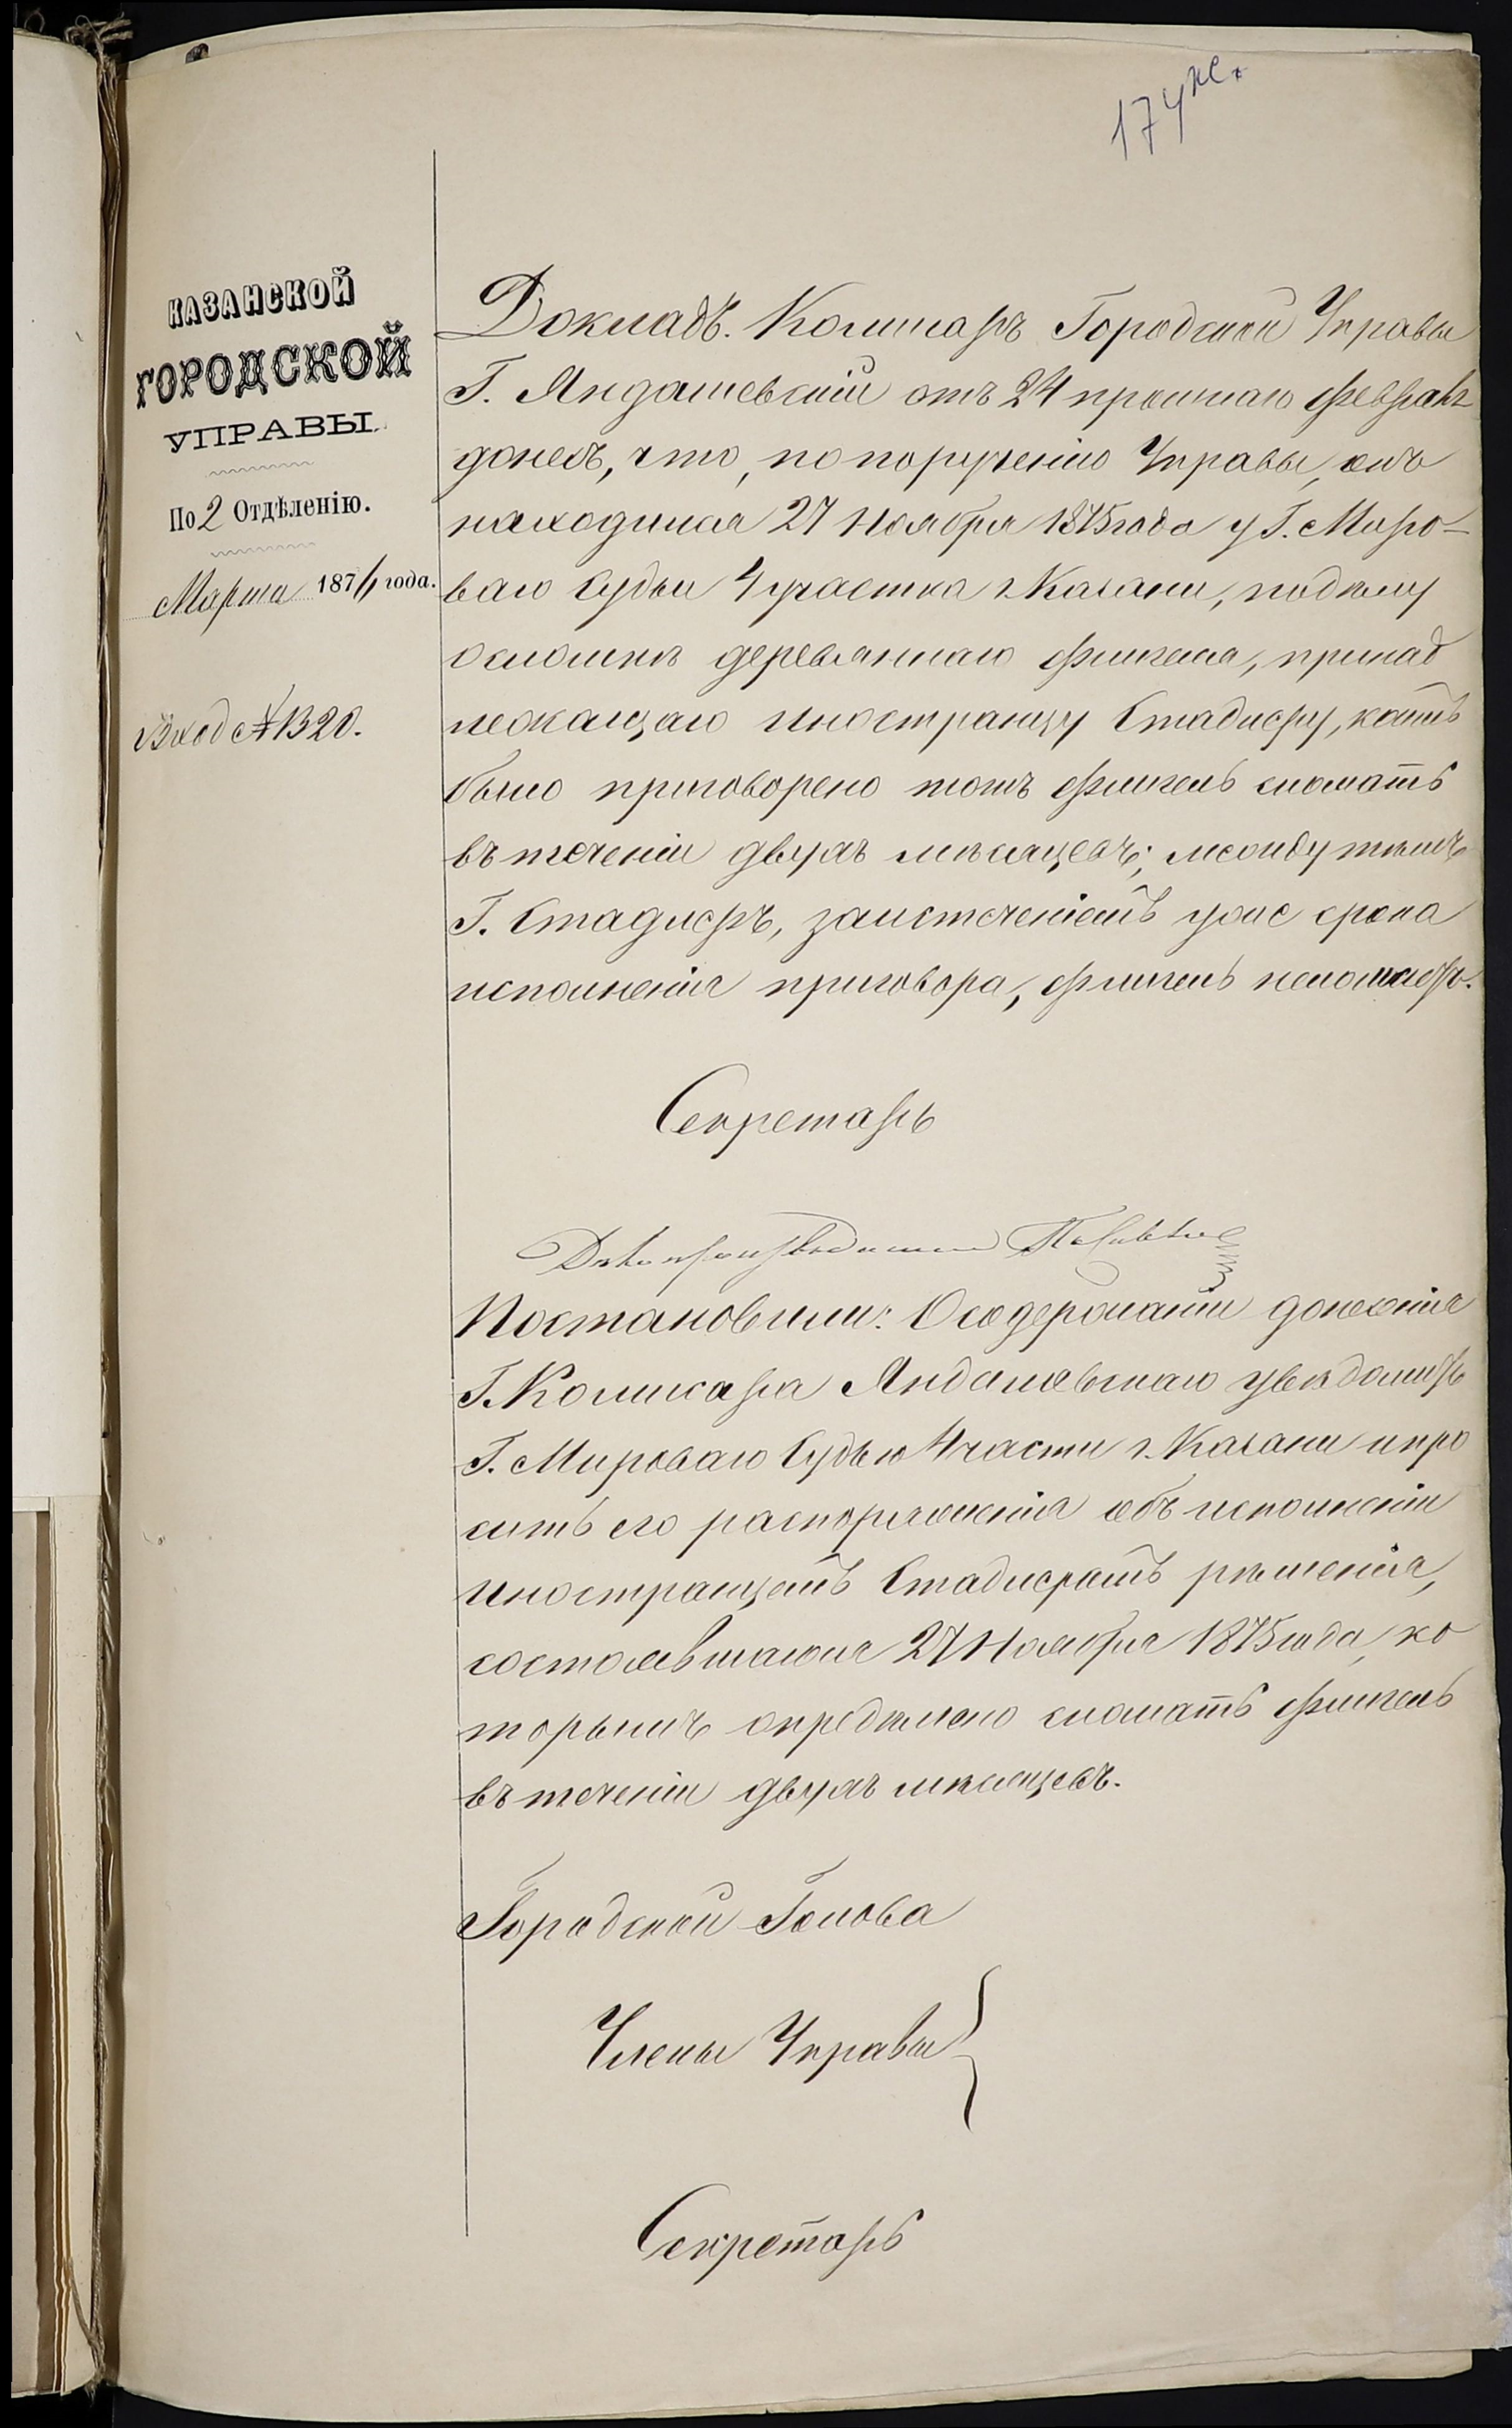 174 же.
КАЗАНСКОЙ
ГОРОДСКОЙ
УПРАВЫ.
По 2 Отдѣленію.
Марта 1876 года.
Вход № 1320.
Докладъ. Комисаръ Городской Управы
Г. Яндашевскій отъ 24 прошлаго Февраля
донесъ, что, по порученію Управы, онъ
находился 27 Ноября 1875 года у Г. Миро-
ваго Судьи 4 участка г. Казани, по дѣлу
о сломкѣ деревяннаго флигеля, принад
лежащаго иностранцу Стадлеру, коимъ
было приговорено тотъ флигель сломать
въ теченіи двухъ мѣсяцевъ; между тѣмъ
Г. Стадлеръ, за истеченіемъ уже срока
исполненія приговора, флигель не сломалъ.
Секретарь
Дѣлопроизводитель
Постановили: О содержаніи донесенія
Г. Комисара Яндашевскаго увѣдомить
Г. Мироваго Судью 4 части г. Казани и про
сить его распоряженія объ исполненіи
иностранцемъ Стадлеромъ рѣшенія,
состоявшагося 27 Ноября 1875 года, ко
торымъ опредѣлено сломать флигель
въ теченіи двухъ мѣсяцевъ.
Городской Голова
Члены Управы
Секретарь